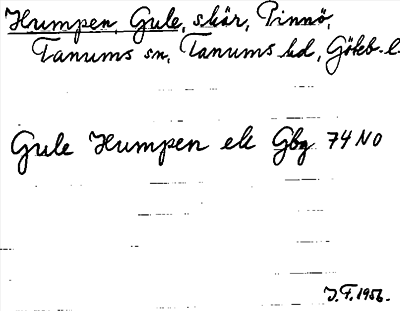 Humpen, Gule, skär, Pinnö,
Tanums sn, Tanums hd, Göteb. l.
Gule Humpen ek Gbg 74 NO
J.F. 1956.